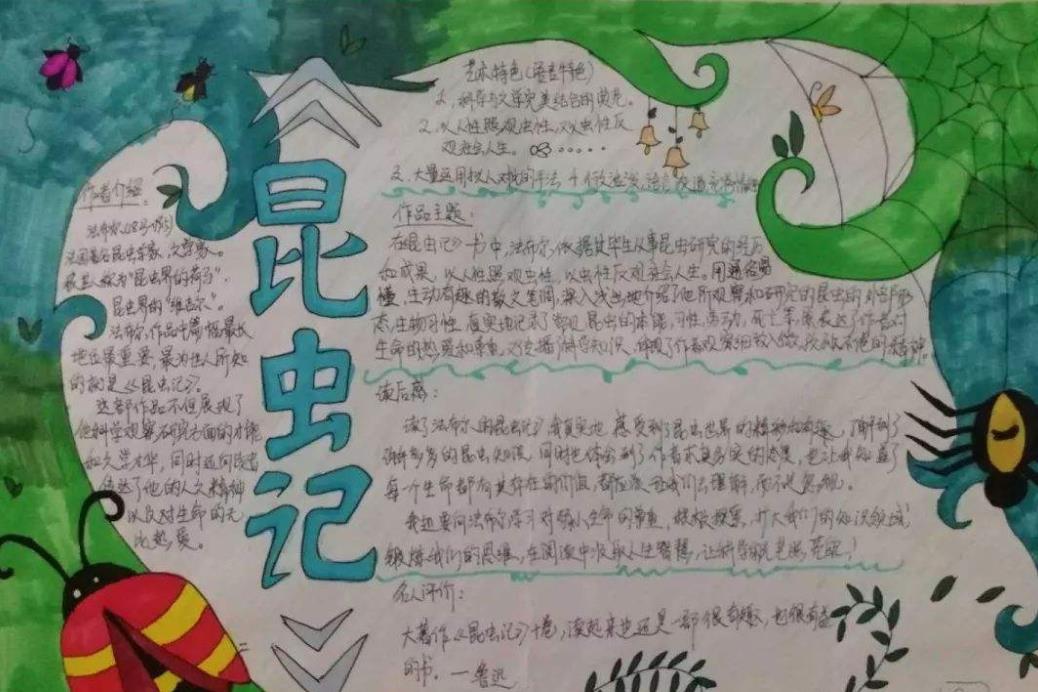 昆虫记
作者介绍：
法布尔(1823-1915)
法国著名昆虫学家,文学家。
被世人称为"昆虫界的荷马",
昆虫界的"维吉尔"。
法布尔作品中篇幅最长
地位最重要,最为世人所知
的就是《昆虫记》。
这部作品不但展现了
他科学观察研究方面的才能
和文学才华,同时还向读者
传达了他的人文精神
以及对生命的无
比热爱。
艺术特色(语言特色)
1、科学与文学完美结合的典范。
2、以人性照观虫性,又以虫性反
观社会人生。
作品主题：
在《昆虫记》一书中,法布尔依据其毕生从事昆虫研究的经历
和成果,以人性照观虫性,以虫性反观社会人生。用通俗易
懂、生动有趣的散文笔调,深入浅出地介绍了他所观察和研究的昆虫的外部形
态、生物习性,真实地记录了常见昆虫的本能、习性、劳动、死亡等,表达了作者对
生命的热爱和尊重,
读后感：
读了法布尔的《昆虫记》,感受到了昆虫世界的
的昆虫知识,同时也体会到了作者求真务实的态度,也让我知道了
每个生命都有其存在的价值,都应该
我还要向法布尔学习对弱小生命的尊重,积极探索,扩大我们的知识领域,
锻炼我们的思维,在阅读中汲取人生智慧,
名人评价：
大著作《昆虫记》十卷,读起来也还是一部很有趣,也很有益
的书。—鲁迅